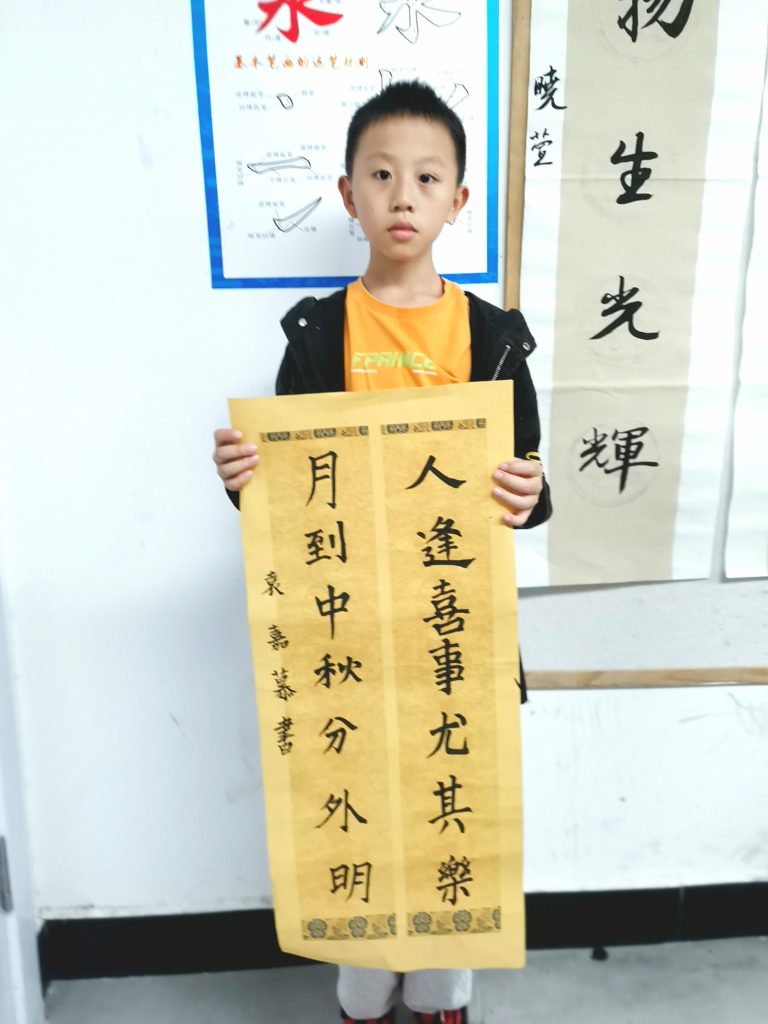 基本笔画的运笔规则
永
永
曉
萱
扬
生
光
輝
FPRINCE
人逢喜事尤其樂
月到中秋分外明
袁嘉慕書